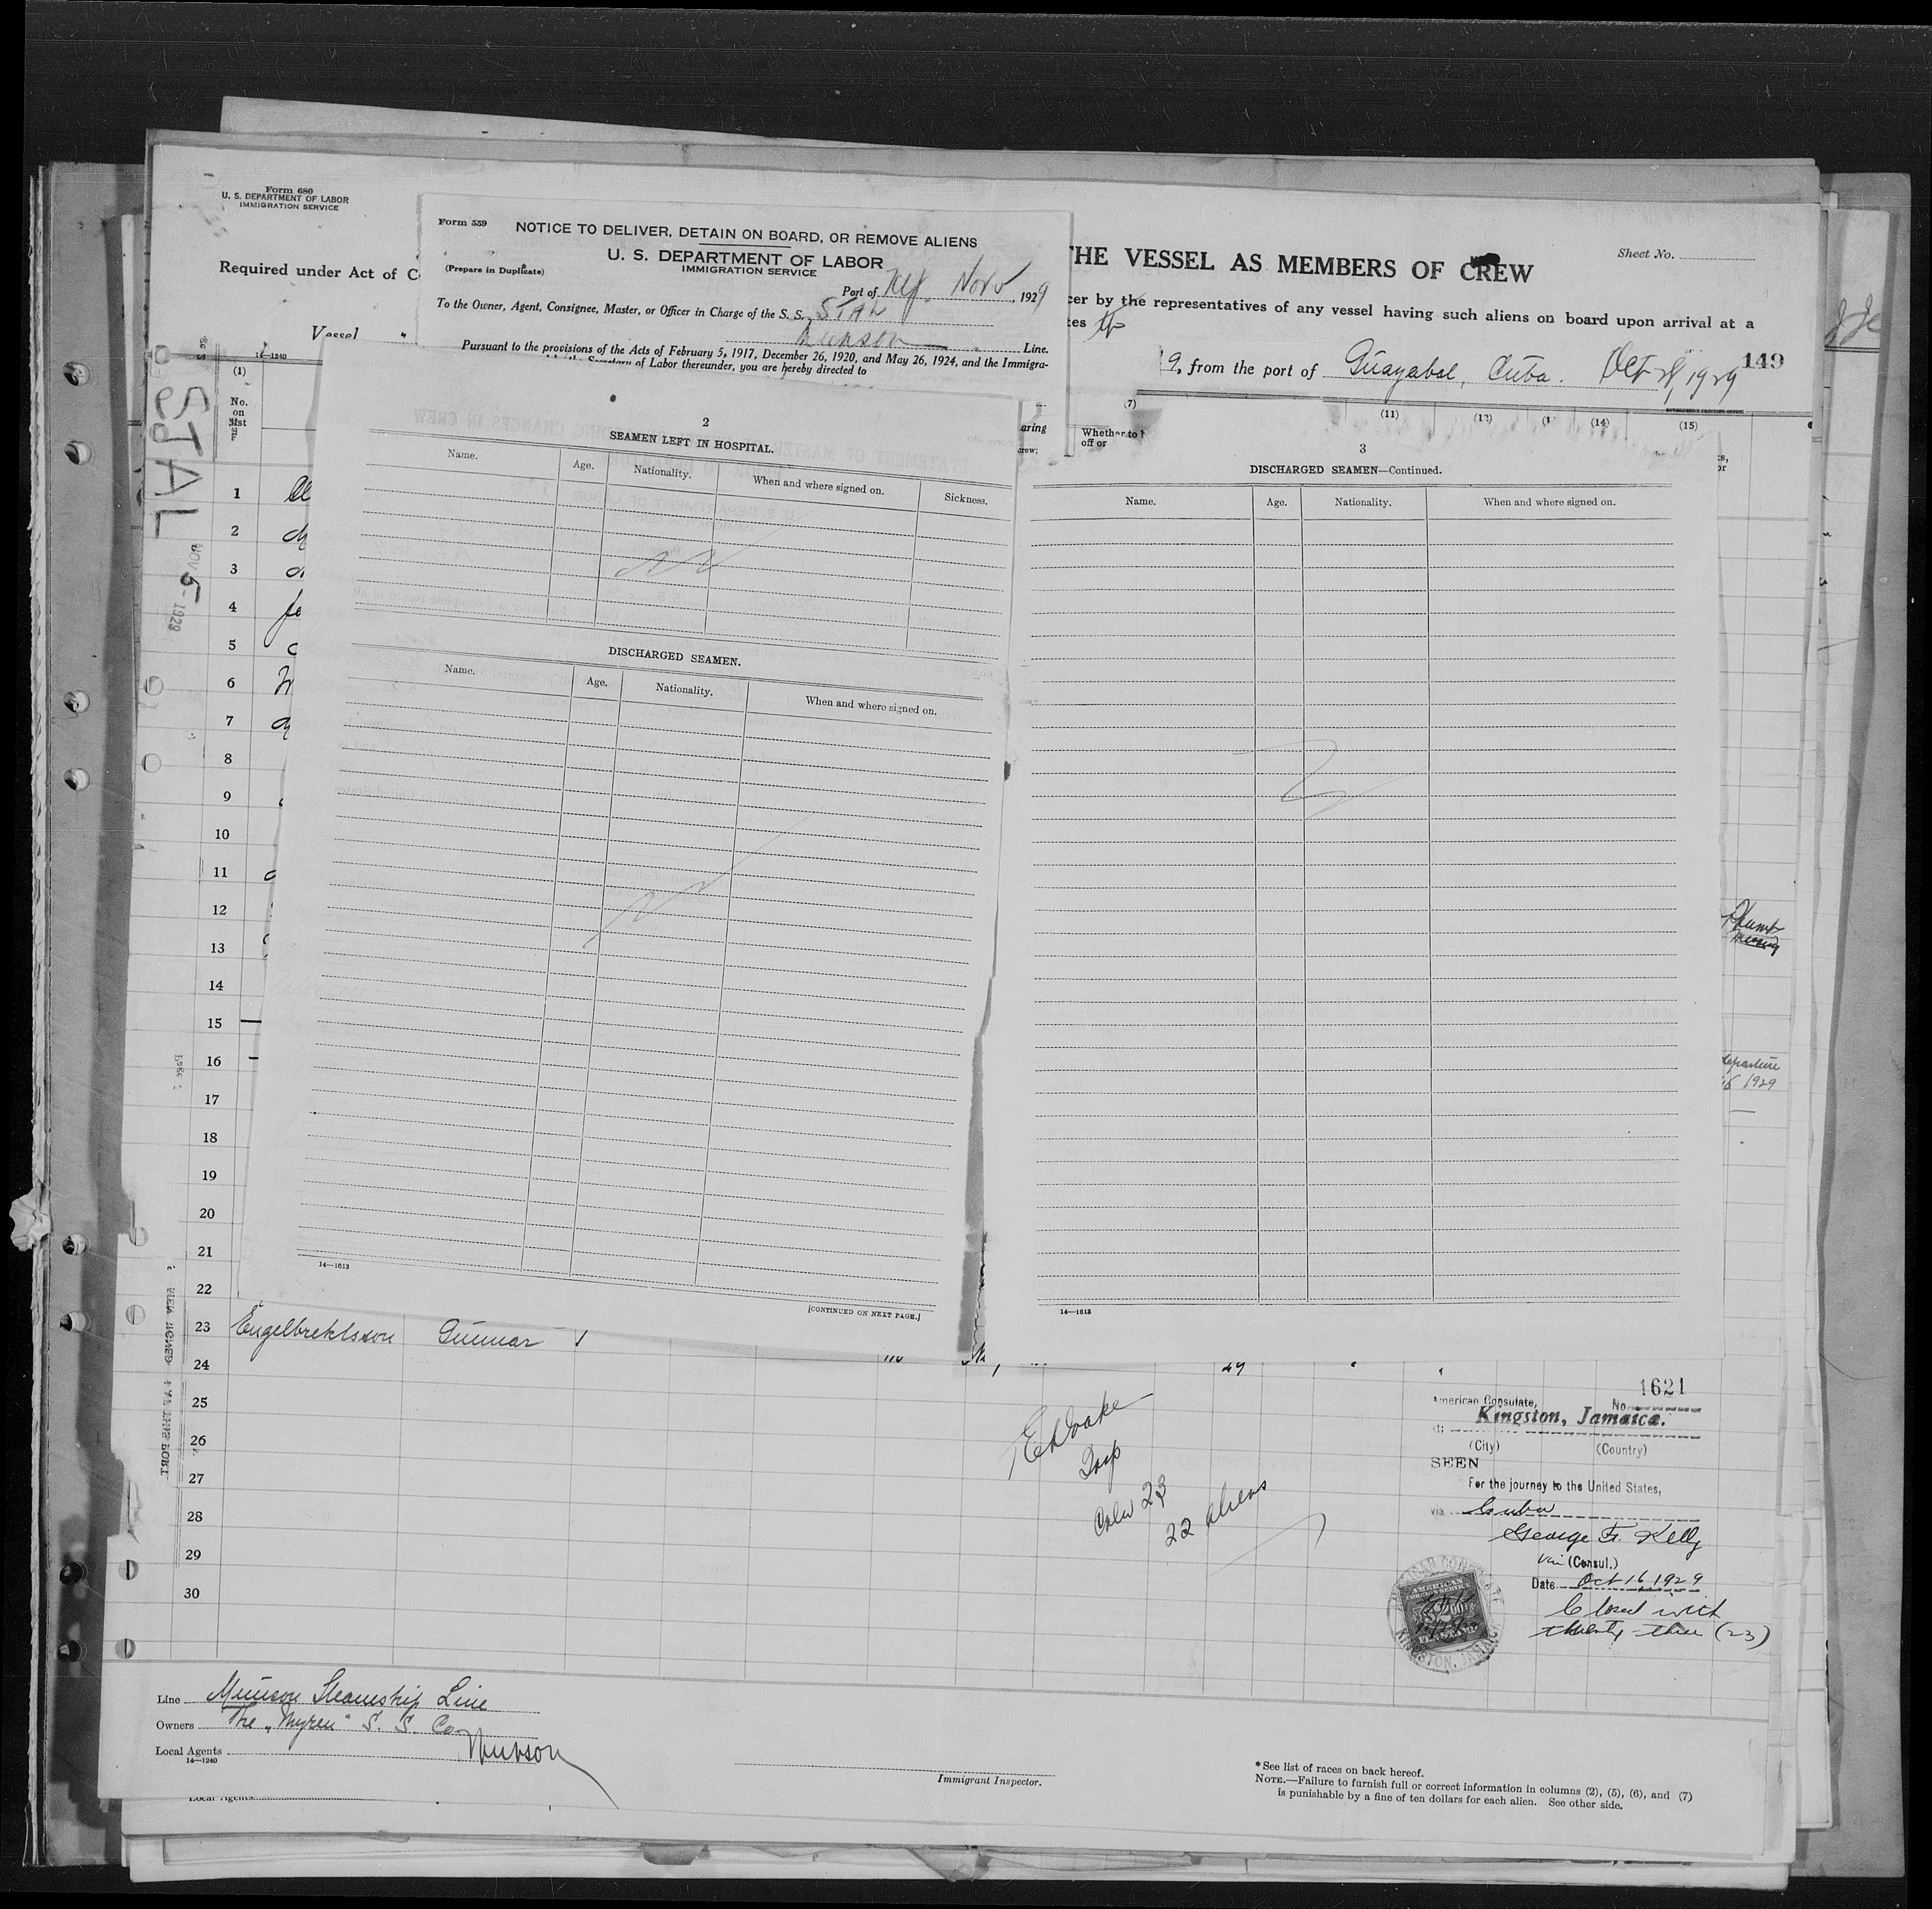 Form 680
U. S. DEPARTMENT OF LABOR
IMMIGRATION SERVICE
Required under Act of C
Vessel
Form 559
NOTICE TO DELIVER, DETAIN ON BOARD, OR REMOVE ALIENS
U. S. DEPARTMENT OF LABOR
IMMIGRATION SERVICE
(Prepare in Duplicate)
Port of Nov , 1929
To the Owner, Agent, Consignee, Master, or Officer in Charge of the S. S. STAL
Munson Line.
Pursuant to the provisions of the Acts of February 5, 1917, December 26, 1920, and May 26, 1924, and the Immigra-
Secretary of Labor thereunder, you are hereby directed to
THE VESSEL AS MEMBERS OF CREW
Sheet No.
cer by the representatives of any vessel having such aliens on board upon arrival at a
9, from the port of Guayabal, Cuba. Oct 29, 1929
149
14—1240
(1)
No.
on
list
(7)
Whether to b
off or
aring
crew;
(11)
(12)
(14)
(15)
STAL
NOV 5 - 1929
2
SEAMEN LEFT IN HOSPITAL.
Name. Age. Nationality. When and where signed on. Sickness.
DISCHARGED SEAMEN.
Name. Age. Nationality. When and where signed on.
14—1613
[CONTINUED ON NEXT PAGE.]
3
DISCHARGED SEAMEN—Continued.
Name. Age. Nationality. When and where signed on.
14—1613
departure
1929
1
2
3
4
5
6
7
8
9
10
11
12
13
14
15
16
17
18
19
20
21
22
23 Engelbrektsson Gunnar
24
25
26
27
28
29
30
Insp
Crew 23
22 aliens
1621
American Consulate, No.
Kingston, Jamaica.
(City) (Country)
SEEN
For the journey to the United States,
via Cuba
George F. Kelly
(Consul.)
Date Oct 16, 1929
Closed with
twenty three (23)
AMERICAN
FOREIGN SERVICE
FEE STAMP
KINGSTON, JAMAICA
Line Munson Steamship Line
Owners The "Myren" S. S. Co
Local Agents Munson
14—1240
Immigrant Inspector.
*See list of races on back hereof.
NOTE.—Failure to furnish full or correct information in columns (2), (5), (6), and (7)
is punishable by a fine of ten dollars for each alien. See other side.
Local Agents